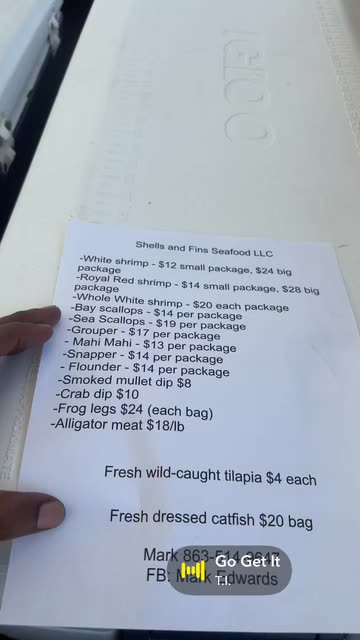 IGLOO
Shells and Fins Seafood LLC
-White shrimp - $12 small package, $24 big
package
-Royal Red shrimp - $14 small package, $28 big
package
-Whole White shrimp - $20 each package
-Bay scallops - $14 per package
-Sea Scallops - $19 per package
-Grouper - $17 per package
- Mahi Mahi - $13 per package
-Snapper - $14 per package
- Flounder - $14 per package
-Smoked mullet dip $8
-Crab dip $10
-Frog legs $24 (each bag)
-Alligator meat $18/lb
Fresh wild-caught tilapia $4 each
Fresh dressed catfish $20 bag
Mark 863-514-
FB: Mark Edwards
Go Get It
T.I.